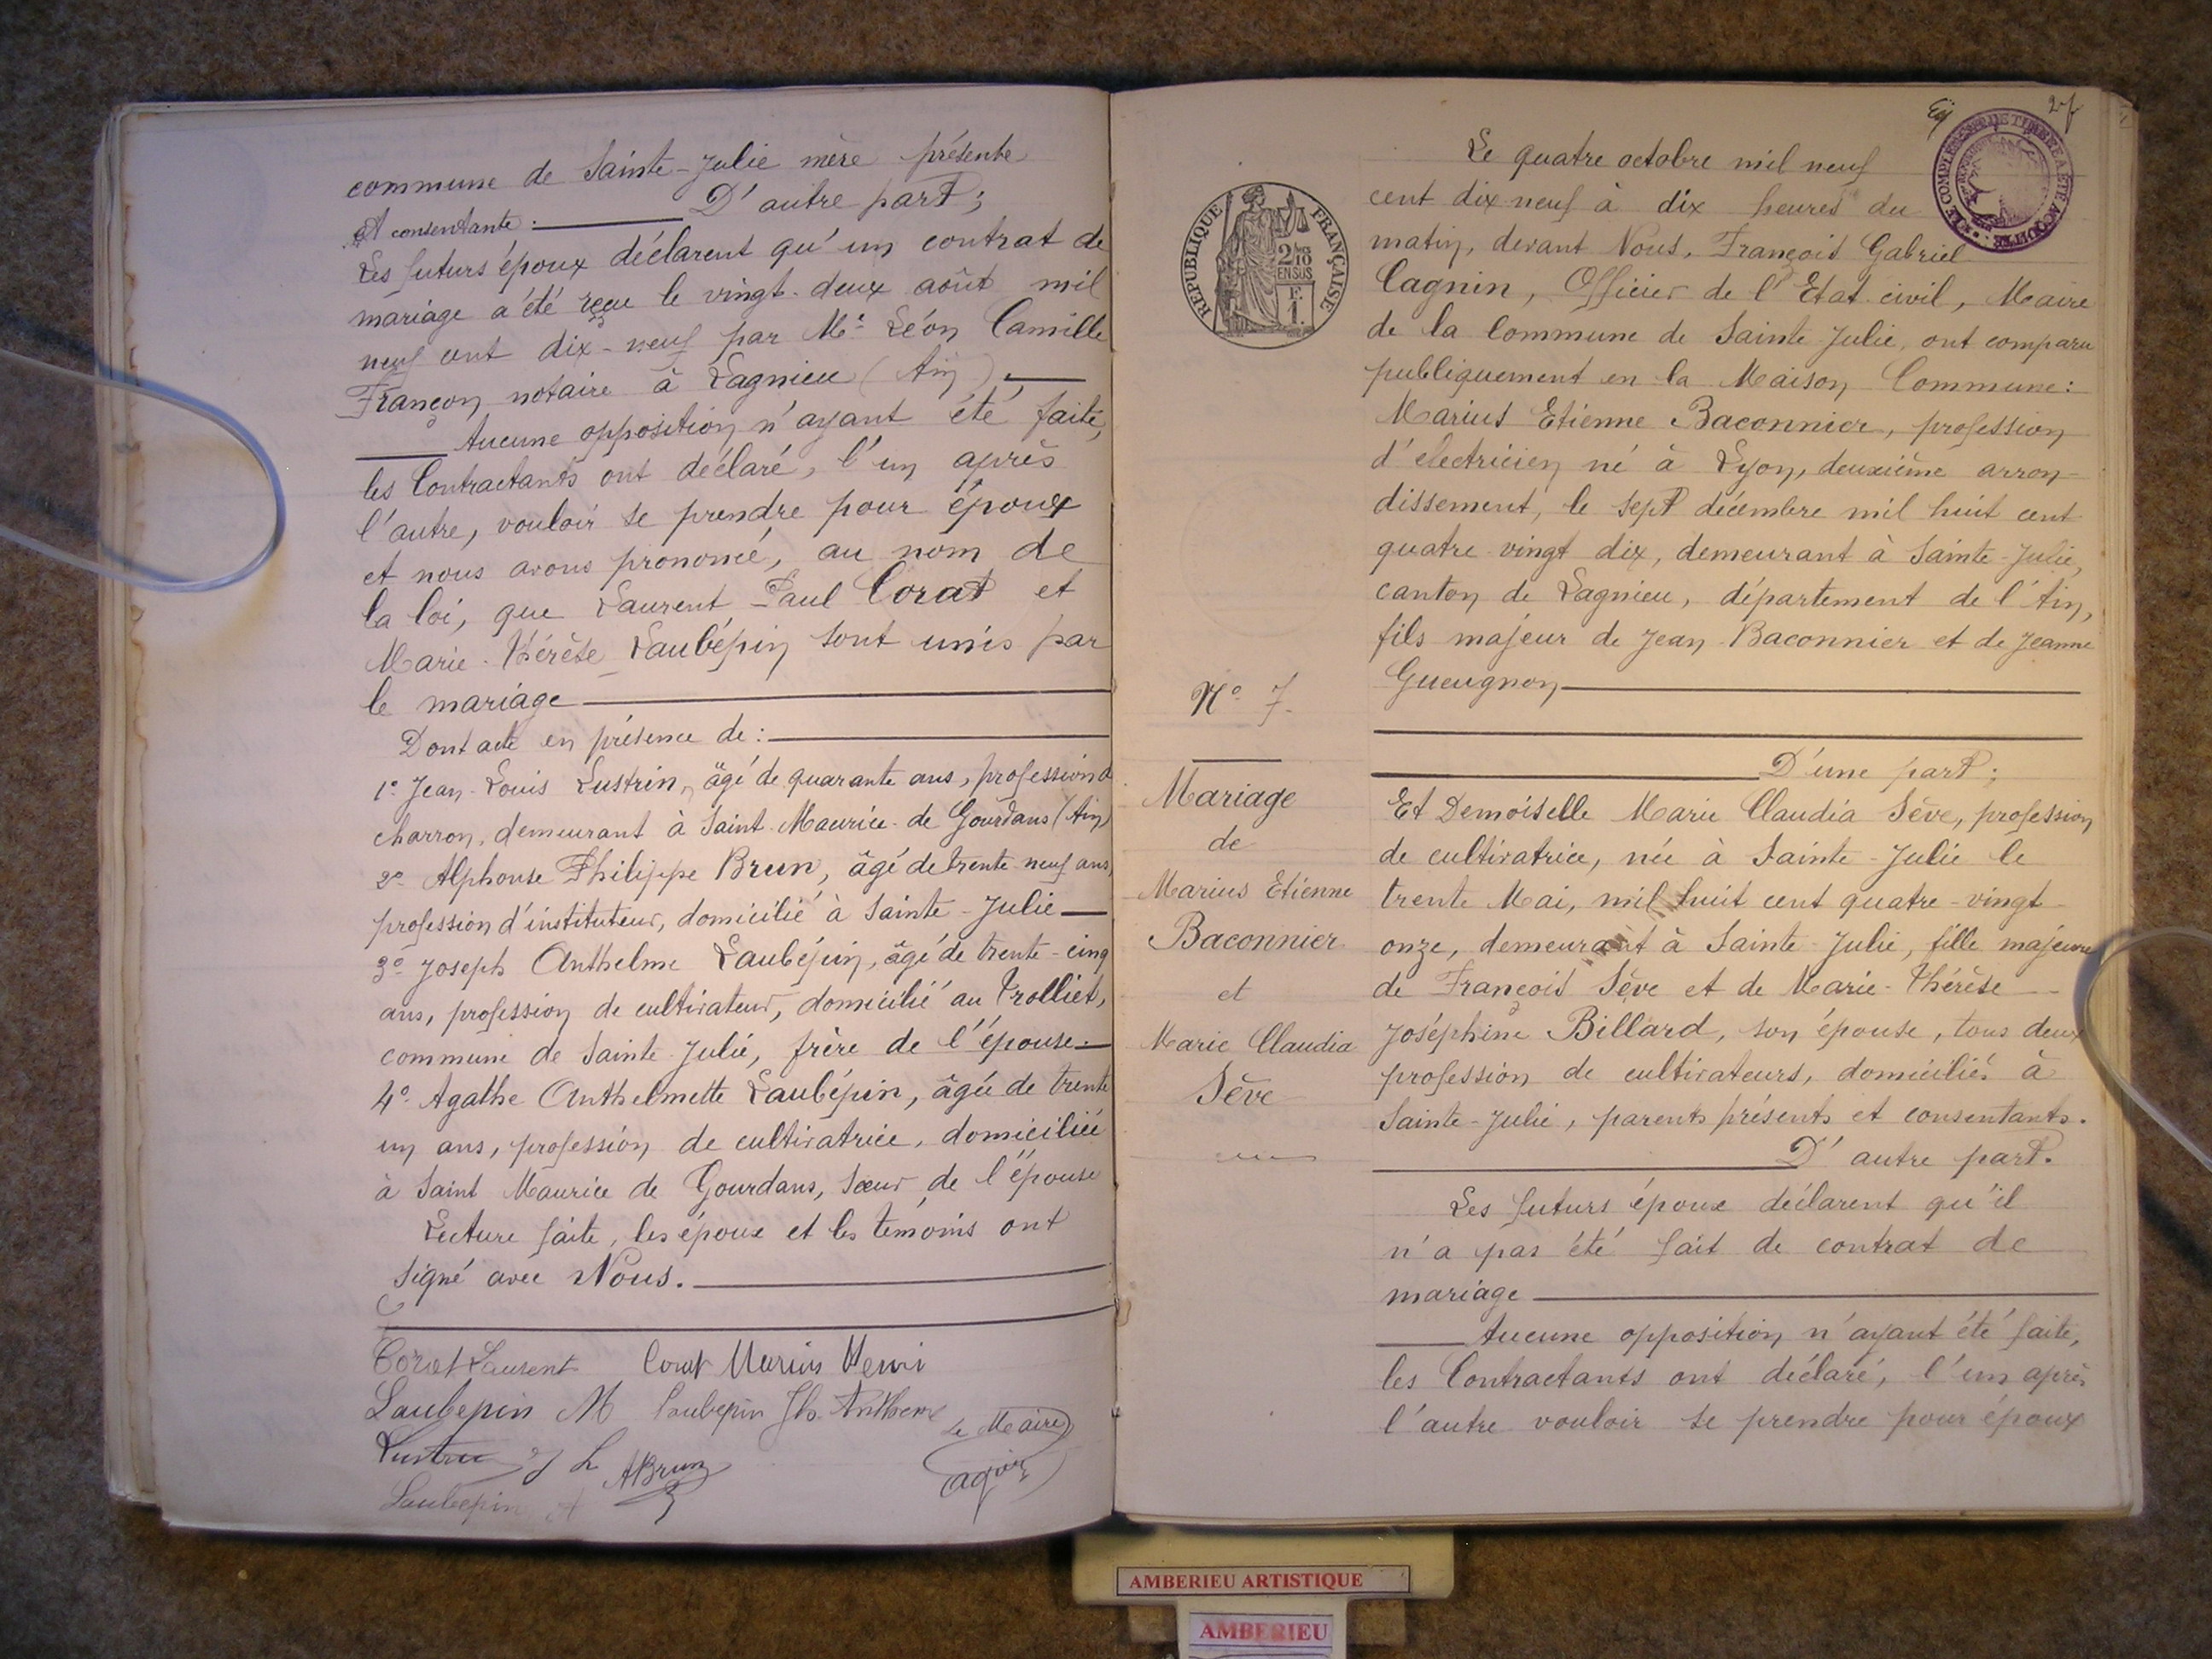 commune de Sainte-Julie mère présente
et consentante : D'autre part;
Les futurs époux déclarent qu'un contrat de
mariage a été reçu le vingt-deux août mil
neuf cent dix-neuf par Me Léon Camille
Françon notaire à Lagnieu (Ain).
Aucune opposition n'ayant été faite,
les Contractants ont déclaré, l'un après
l'autre, vouloir se prendre pour époux
et nous avons prononcé, au nom de
la loi, que Laurent Paul Corat et
Marie-Thérèse Laubépin sont unis par
le mariage
Dont acte en présence de :
1° Jean-Louis Lustrin, âgé de quarante ans, profession d
charron, demeurant à Saint-Maurice-de Gourdans (Ain)
2° Alphonse Philippe Brun, âgé de trente-neuf ans,
profession d'instituteur, domicilié à Sainte-Julie
3° Joseph Anthelme Laubépin, âgé de trente-cinq
ans, profession de cultivateur, domicilié au Trolliet,
commune de Sainte-Julie, frère de l'épouse.
4° Agathe Anthelmette Laubépin, âgée de trente
un ans, profession de cultivatrice, domiciliée
à Saint Maurice de Gourdans, sœur de l'épouse
Lecture faite, les époux et les témoins ont
signé avec Nous.
Corat Laurent Corat Marius Henri
Laubepin M Laubepin Jh. Anthelme
Lustrin J L ABrun Le Maire
Laubepin A Cagnin
27
Le quatre octobre mil neuf
cent dix neuf à dix heures du
matin, devant Nous, François Gabriel
Cagnin, Officier de l'Etat civil, Maire
de la Commune de Sainte-Julie, ont comparu
publiquement en la Maison Commune:
Marius Etienne Baconnier, profession
d'electricien né à Lyon, deuxième arron-
dissement, le sept décembre mil huit cent
quatre-vingt dix, demeurant à Sainte-Julie,
canton de Lagnieu, département de l'Ain,
fils majeur de Jean Baconnier et de Jeanne
Gueugnon
D'une part;
Et Demoiselle Marie Claudia Sève, profession
de cultivatrice, née à Sainte-Julie le
trente Mai, mil huit cent quatre-vingt
onze, demeurant à Sainte-Julie, fille majeure
de François Sève et de Marie-Thérèse
Joséphine Billard, son épouse, tous deux
profession de cultivateurs, domiciliés à
Sainte-Julie, parents présents et consentants.
D'autre part.
Les futurs époux déclarent qu'il
n'a pas été fait de contrat de
mariage
Aucune opposition n'ayant été faite,
les Contractants ont déclaré, l'un après
l'autre vouloir se prendre pour époux
RÉPUBLIQUE FRANÇAISE
2/10
EN SUS
F.
1.
N° 7.
Mariage
de
Marius Etienne
Baconnier
et
Marie Claudia
Sève
LE COMPLEMENT DE TIMBRE A ETE ACQUITTE
AMBERIEU ARTISTIQUE
AMBERIEU